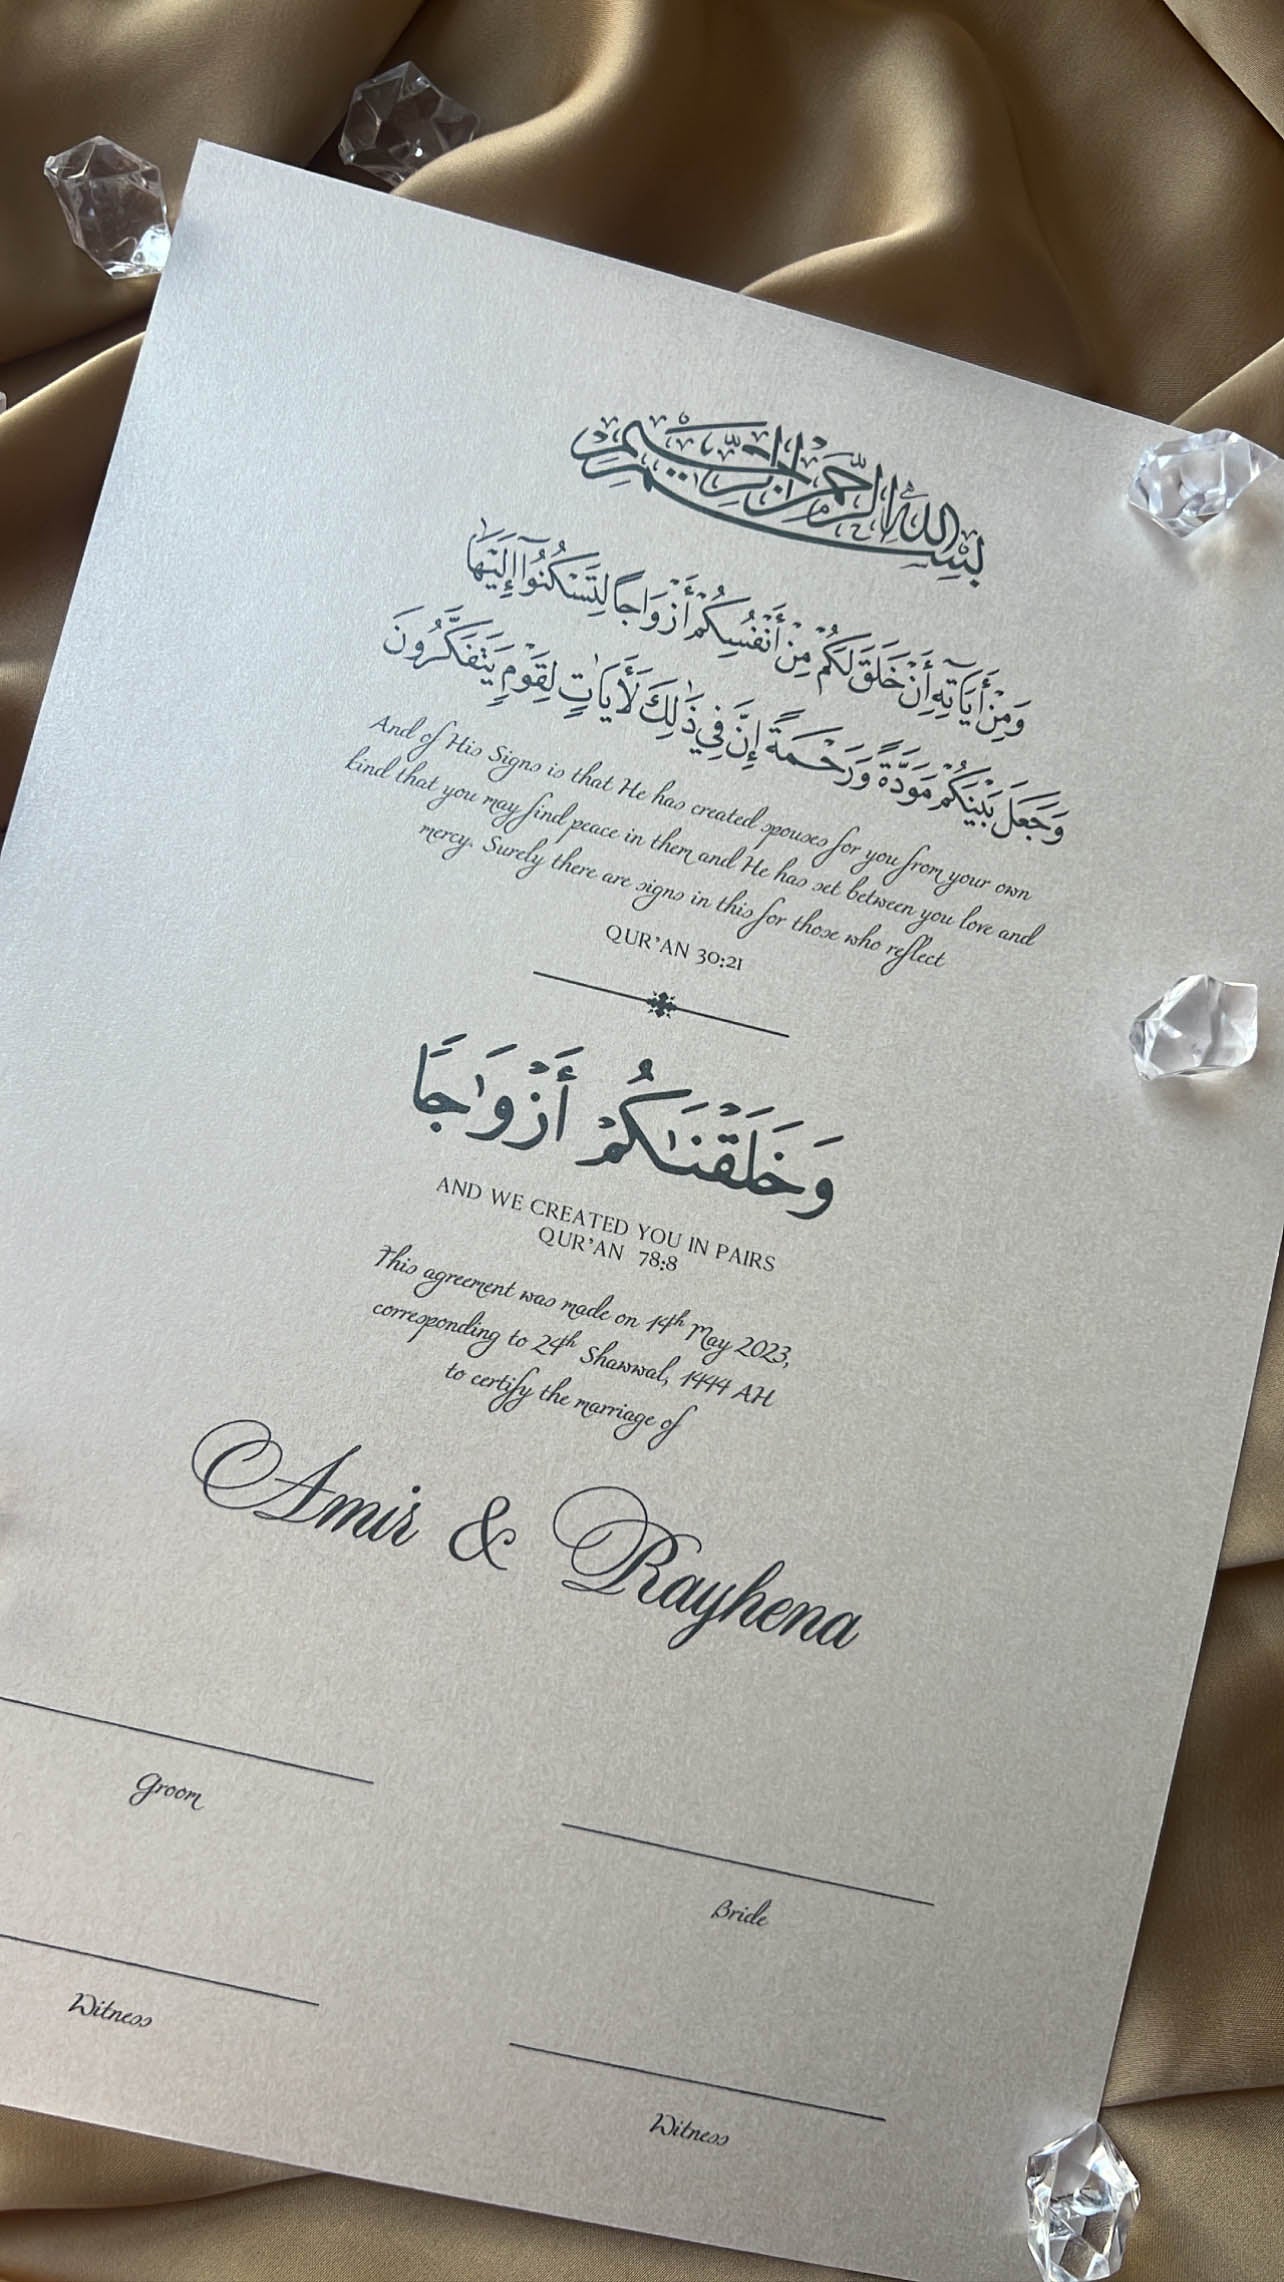 بِسْمِ اللَّهِ الرَّحْمَٰنِ الرَّحِيمِ
وَمِنْ أَيَاتِهِ أَنْ خَلَقَ لَكُمْ مِنْ أَنْفُسِكُمْ أَزْوَاجًا لِتَسْكُنُوا إِلَيْهَا
وَجَعَلَ بَيْنَكُمْ مَوَدَّةً وَرَحْمَةً إِنَّ فِي ذَٰلِكَ لَأَيَاتٍ لِقَوْمٍ يَتَفَكَّرُونَ
And of His Signs is that He has created spouses for you from your own
kind that you may find peace in them and He has set between you love and
mercy. Surely there are signs in this for those who reflect
QUR'AN 30:21
وَخَلَقْنَٰكُمْ أَزْوَٰجًا
AND WE CREATED YOU IN PAIRS
QUR'AN 78:8
This agreement was made on 14th May 2023,
corresponding to 24th Shawwal, 1444 AH
to certify the marriage of
Amir & Rayhena
Groom
Bride
Witness
Witness